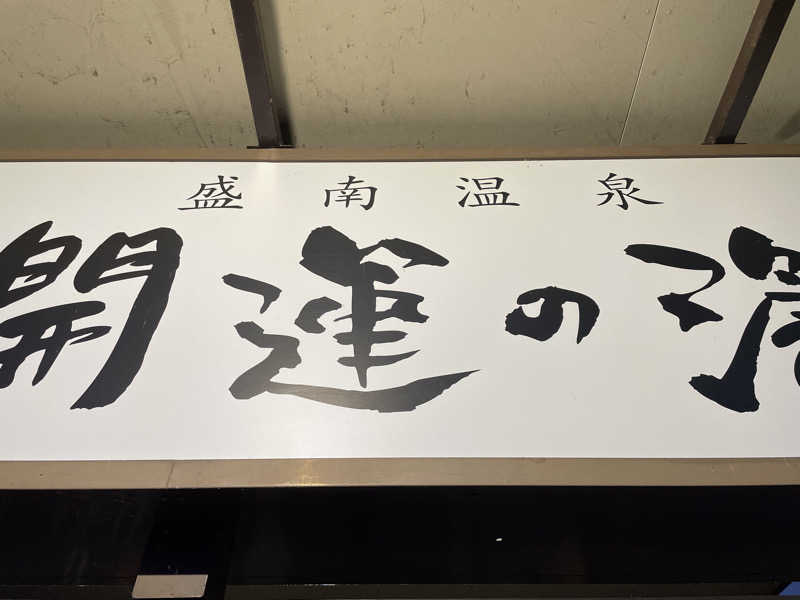 盛南温泉
開運の湯